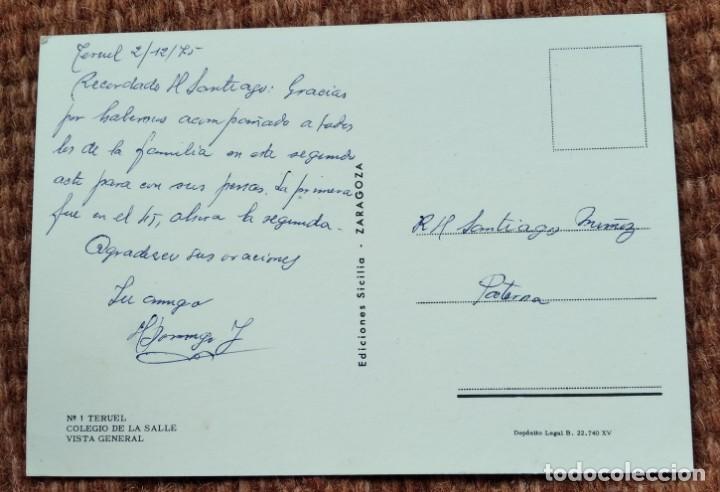 Teruel 2/12/75
Recordado H Santiago: Gracias
por habernos acompañado a todos
los de la familia en este segundo
acto para con sus personas. La primera
fue en el 45, ahora la segunda.
Agradezco sus oraciones
Su amigo
H Domingo J
Nº 1 TERUEL
COLEGIO DE LA SALLE
VISTA GENERAL
Ediciones Sicilia - ZARAGOZA
R H Santiago Muñoz
Paterna
Depósito Legal B. 22.740 XV
todocoleccion.net